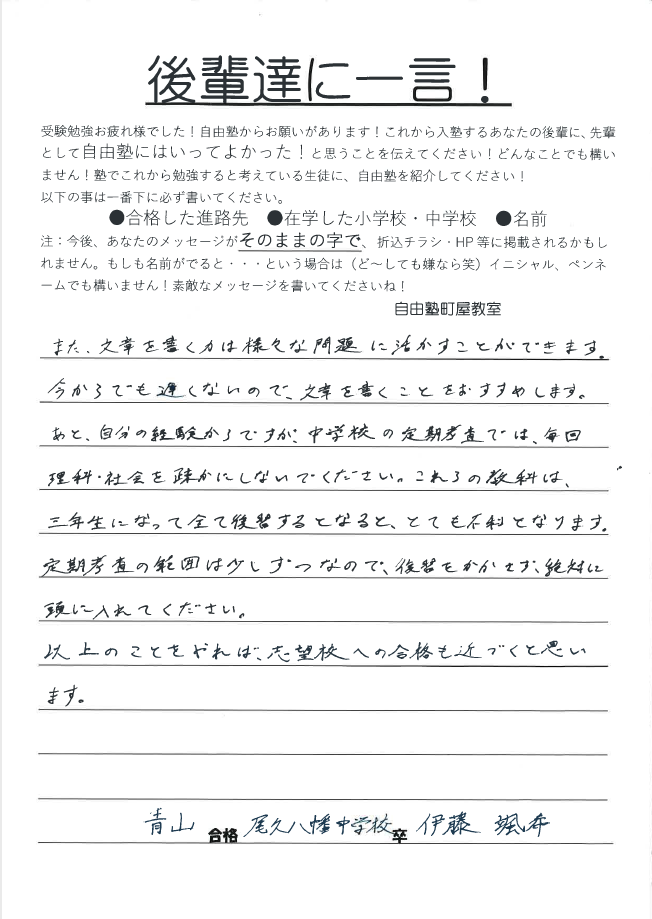 後輩達に一言！
受験勉強お疲れ様でした！自由塾からお願いがあります！これから入塾するあなたの後輩に、先輩
として自由塾にはいってよかった！と思うことを伝えてください！どんなことでも構い
ません！塾でこれから勉強すると考えている生徒に、自由塾を紹介してください！
以下の事は一番下に必ず書いてください。
●合格した進路先　●在学した小学校・中学校　●名前
注：今後、あなたのメッセージがそのままの字で、折込チラシ・HP等に掲載されるかもし
れません。もしも名前がでると・・・という場合は（ど～しても嫌なら笑）イニシャル、ペンネ
ームでも構いません！素敵なメッセージを書いてくださいね！
自由塾町屋教室
また、文章を書く力は様々な問題に活かすことができます。
今からでも遅くないので、文章を書くことをおすすめします。
あと、自分の経験からですが、中学校の定期考査では、毎回
理科・社会を疎かにしないでください。これらの教科は、
三年生になって全て復習するとなると、とても不利となります。
定期考査の範囲は少しずつなので、復習をかかさず、絶対に
頭に入れてください。
以上のことをやれば、志望校への合格も近づくと思い
ます。
青山 合格 尾久八幡中学校卒 伊藤 颯希